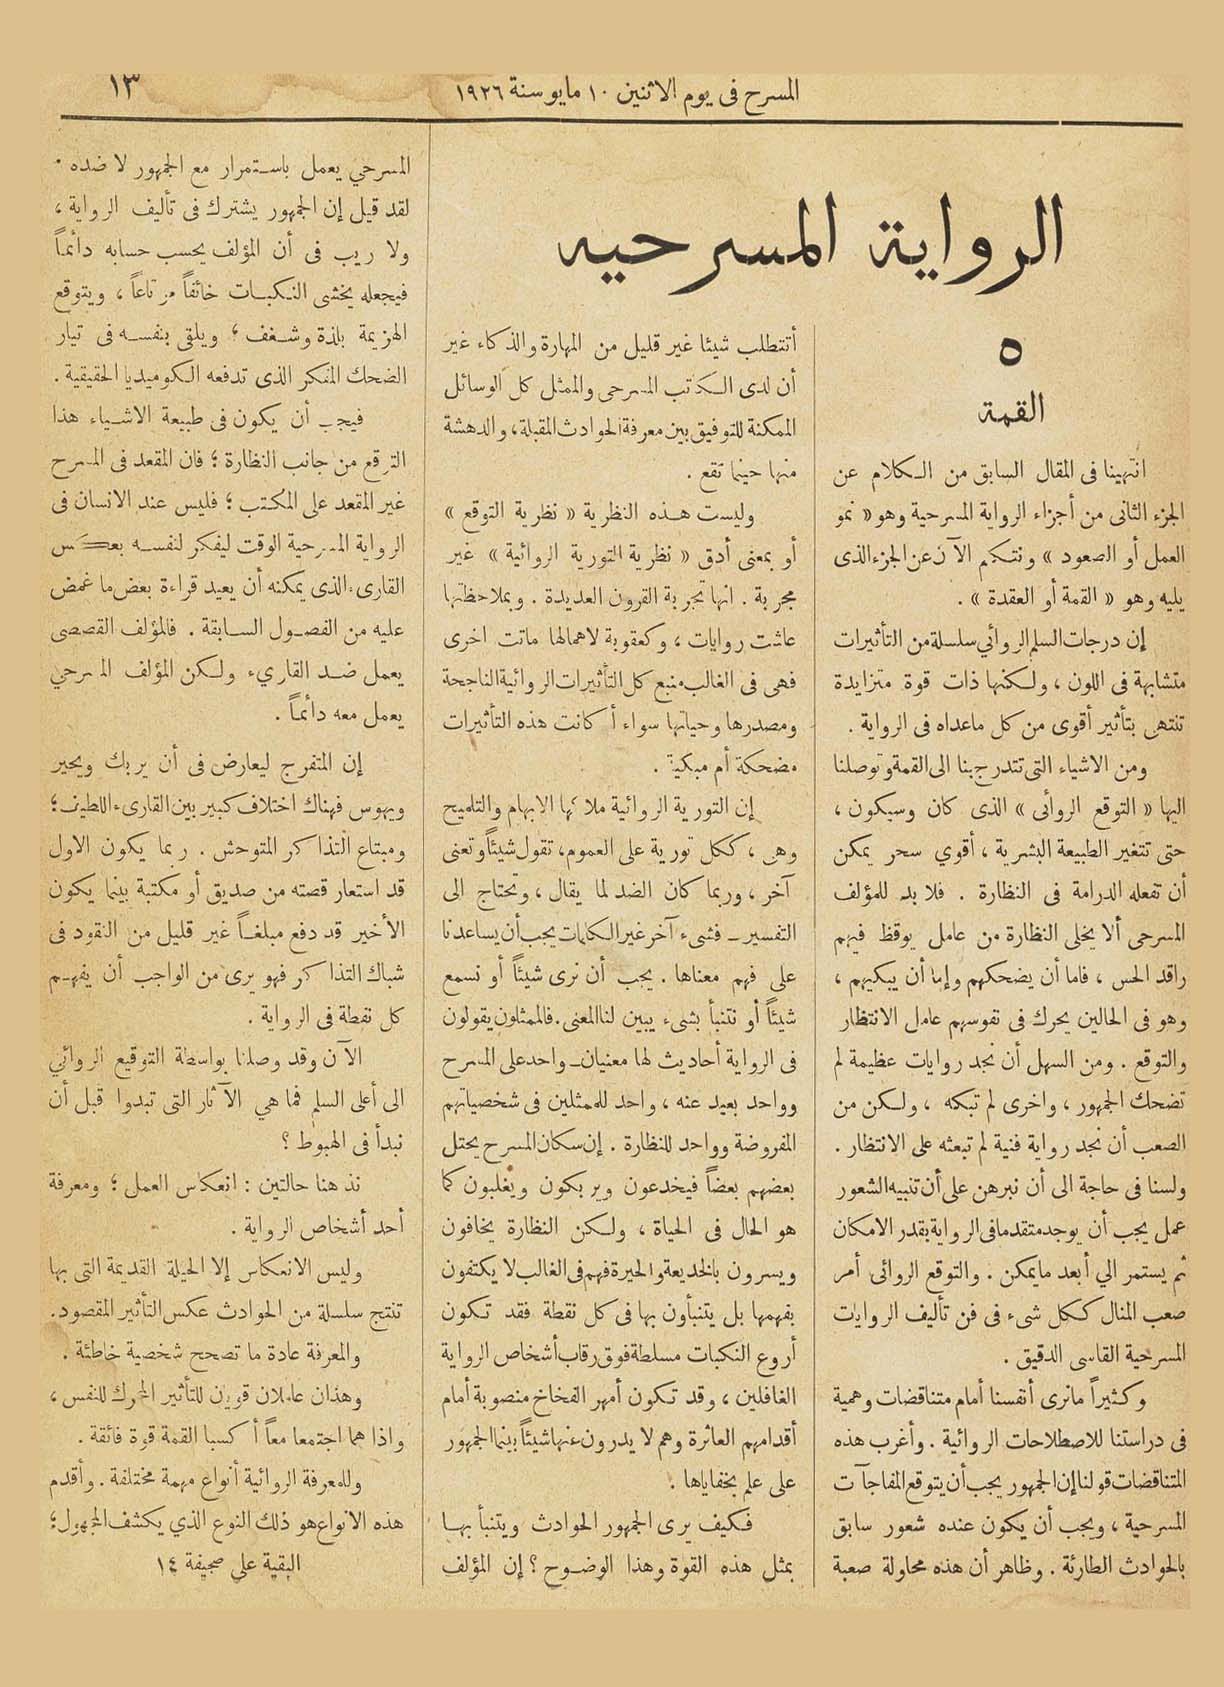 المسرح فى يوم الاثنين ١٠ مايو سنة ١٩٢٦
١٣
الرواية المسرحيه
٥
القمة
انتهينا فى المقال السابق من الكلام عن
الجزء الثانى من أجزاء الرواية المسرحية وهو « نمو
العمل أو الصعود » ونتكلم الآن عن الجزء الذى
يليه وهو « القمة أو العقدة » .
إن درجات السلم الروائي سلسلة من التأثيرات
متشابهة فى اللون ، ولكنها ذات قوة متزايدة
تنتهى بتأثير أقوى من كل ماعداه فى الرواية .
ومن الاشياء التى تتدرج بنا الى القمة وتوصلنا
اليها « التوقع الروأئى » الذى كان وسيكون ،
حتى تتغير الطبيعة البشرية ، أقوي سحر يمكن
أن تفعله الدرامة فى النظارة . فلا بد للمؤلف
المسرحى ألا يخلى النظارة من عامل يوقظ فيهم
راقد الحس ، فاما أن يضحكهم وإما أن يبكيهم ،
وهو فى الحالين يحرك فى نفوسهم عامل الانتظار
والتوقع . ومن السهل أن نجد روايات عظيمة لم
تضحك الجمهور ، واخرى لم تبكه ، ولكن من
الصعب أن نجد رواية فنية لم تبعثه على الانتظار .
ولسنا فى حاجة الى أن نبرهن على أن تنبيه الشعور
عمل يجب أن يوجد متقدما فى الرواية بقدر الامكان
ثم يستمر الي أبعد مايمكن . والتوقع الروائى أمر
صعب المنال ككل شىء فى فن تأليف الروايات
المسرحية القاسى الدقيق .
وكثيراً مانرى أنفسنا أمام متناقضات وهمية
فى دراستنا للاصطلاحات الروائية . وأغرب هذه
المتناقضات قولنا إن الجمهور يجب أن يتوقع المفاجآت
المسرحية ، ويجب أن يكون عنده شعور سابق
بالحوادث الطارئة . وظاهر أن هذه محاولة صعبة
أتتطلب شيئا غير قليل من المهارة والذكاء غير
أن لدى الكاتب المسرحى والممثل كل الوسائل
الممكنة للتوفيق بين معرفة الحوادث المقبلة ، والدهشة
منها حينما تقع .
وليست هذه النظرية « نظرية التوقع »
أو بمعنى أدق « نظرية التورية الروائية » غير
مجربة . انها تجربة القرون العديدة . وبملاحظتها
عاشت روايات ، وكعقوبة لاهمالها ماتت اخرى
فهى فى الغالب منبع كل التأثيرات الروائية الناجحة
ومصدرها وحياتها سواء أكانت هذه التأثيرات
مضحكة أم مبكية .
إن التورية الروائية ملاكها الابهام والتلميح
وهى ، ككل تورية على العموم ، تقول شيئاً وتعنى
آخر ، وربما كان الضد لما يقال ، وتحتاج الى
التفسير ــ فشىء آخر غير الكلمات يجب أن يساعدنا
على فهم معناها . يجب أن نرى شيئاً أو نسمع
شيئاً أو نتنبأ بشىء يبين لنا المعنى . فالممثلون يقولون
فى الرواية أحاديث لها معنيان ــ واحد على المسرح
وواحد بعيد عنه ، واحد للممثلين فى شخصياتهم
المفروضة وواحد للنظارة . إن سكان المسرح يحتل
بعضهم بعضاً فيخدعون ويربكون ويغلبون كما
هو الحال فى الحياة ، ولكن النظارة يخافون
ويسرون بالخديعة والحيرة فهم فى الغالب لا يكتفون
بفهمها بل يتنبأون بها فى كل نقطة فقد تكون
أروع النكبات مسلطة فوق رقاب أشخاص الرواية
الغافلين ، وقد تكون أمهر الفخاخ منصوبة أمام
أقدامهم العاثرة وهم لا يدرون عنها شيئاً بينما الجمهور
على علم بخفاياها .
فكيف يرى الجمهور الحوادث ويتنبأ بها
بمثل هذه القوة وهذا الوضوح ؟ إن المؤلف
المسرحي يعمل باستمرار مع الجمهور لا ضده .
لقد قيل إن الجمهور يشترك فى تأليف الرواية ،
ولا ريب فى أن المؤلف يحسب حسابه دائماً
فيجعله يخشى النكبات خائفاً مرتاعاً ، ويتوقع
الهزيمة بلذة وشغف ، ويلقى بنفسه فى تيار
الضحك المنكر الذى تدفعه الكوميديا الحقيقية .
فيجب أن يكون فى طبيعة الاشياء هذا
التوقع من جانب النظارة ؛ فان المقعد فى المسرح
غير المقعد على المكتب ؛ فليس عند الانسان فى
الرواية المسرحية الوقت ليفكر لنفسه بعكس
القارىء الذى يمكنه أن يعيد قراءة بعض ما غمض
عليه من الفصول السابقة . فالمؤلف القصصى
يعمل ضد القاريء ولكن المؤلف المسرحي
يعمل معه دائماً .
إن المتفرج ليعارض فى أن يربك ويحير
ويهوس فهناك اختلاف كبير بين القارىء اللطيف ؛
ومبتاع التذاكر المتوحش . ربما يكون الاول
قد استعار قصته من صديق أو مكتبة بينما يكون
الأخير قد دفع مبلغاً غير قليل من النقود فى
شباك التذاكر فهو يرى من الواجب أن يفهم
كل نقطة فى الرواية .
الآن وقد وصلنا بواسطة التوقيع الروائي
الى أعلى السلم فما هي الآثار التى تبدوا قبل أن
نبدأ فى الهبوط ؟
نذ هنا حالتين : انعكاس العمل ؛ ومعرفة
أحد أشخاص الرواية .
وليس الانعكاس إلا الحيلة القديمة التى بها
تنتج سلسلة من الحوادث عكس التأثير المقصود .
والمعرفة عادة ما تصحح شخصية خاطئة .
وهذان عاملان قويان للتأثير المحرك للنفس ،
واذا هما اجتمعا معاً أكسبا القمة قوة فائقة .
وللمعرفة الروائية أنواع مهمة مختلفة . وأقدم
هذه الانواع هو ذلك النوع الذي يكشف المجهول ؛
البقية علي صحيفة ١٤